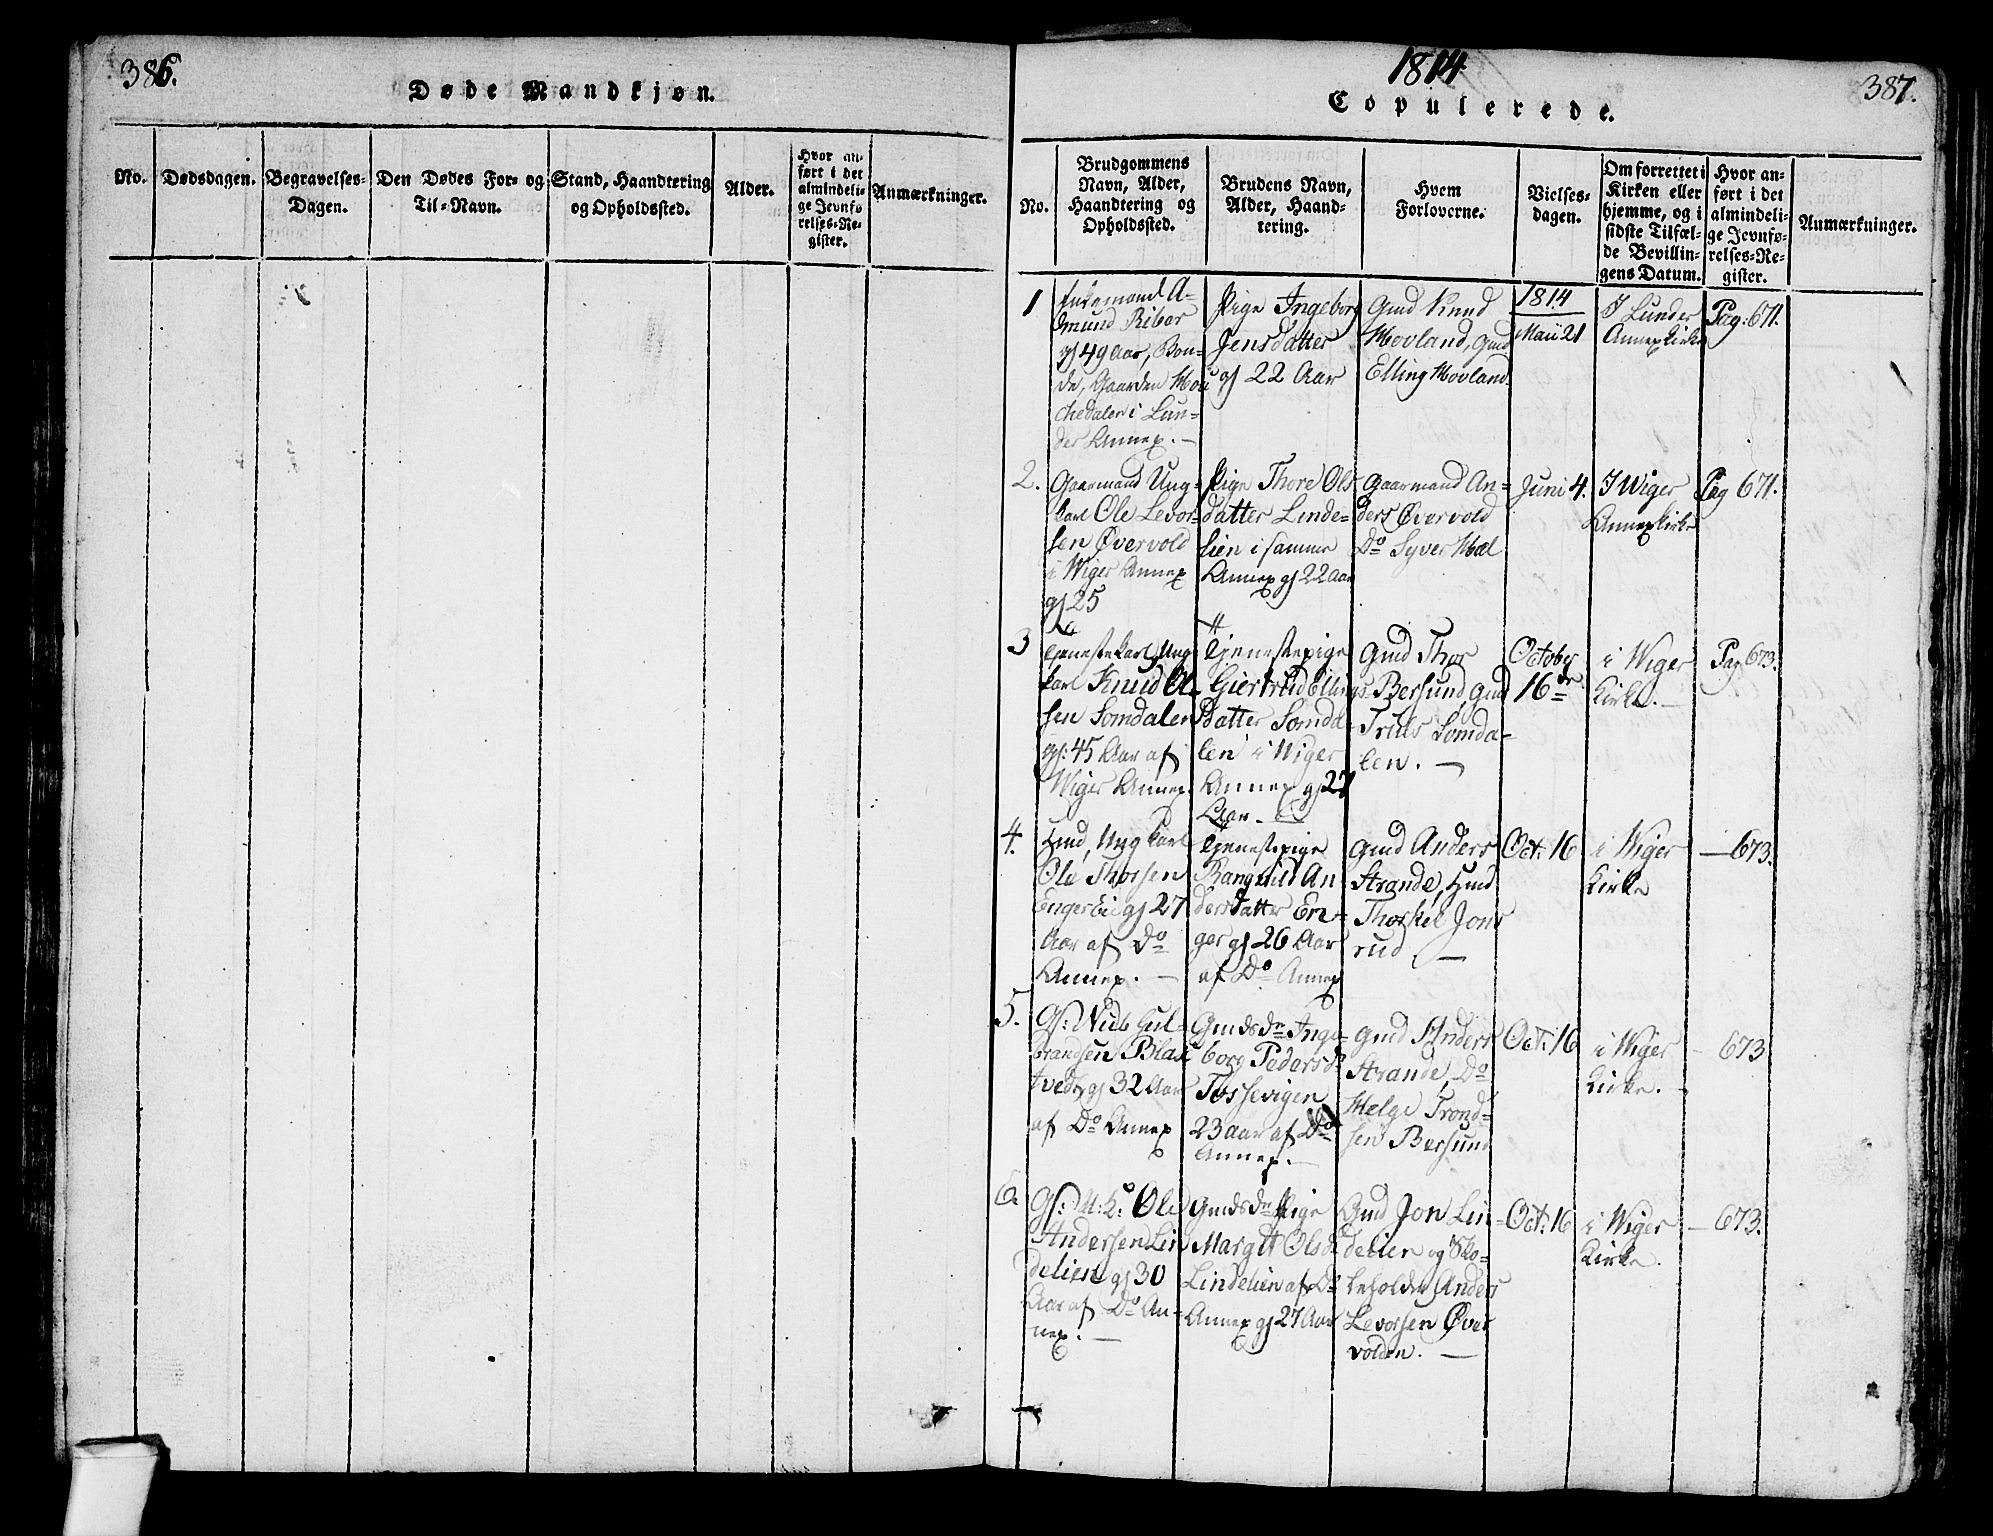 386.
Døde Mandkjøn.
No.
Dødsdagen.
Begravelses-
Dagen.
Den Dødes For- og
Til-Navn.
Stand, Haandtering
og Opholdssted.
Alder.
Hvor an-
ført i det
almindeli-
ge Jevnfø-
relses-Re-
gister.
Anmærkninger.
1814
387.
Copulerede.
No.
Brudgommens
Navn, Alder,
Haandtering og
Opholdssted.
Brudens Navn,
Alder, Haand-
tering.
Hvem
Forloverne.
Vielses-
dagen.
Om forrettet i
Kirken eller
hjemme, og i
sidste Tilfæl-
de Bevillin-
gens Datum.
Hvor an-
ført i det
almindeli-
ge Jevnfø-
relses-Re-
gister.
Anmærkninger.
1
Enkemand A-
mund Ribor
gl 49 Aar, Bon-
de, Gaarden
i Lun-
der Annex. —
Pige Ingeborg
Jensdatter
gl 22 Aar
Gmd Knud
Hovland, Gmd
Elling Hovland.
1814
Maii 21
I Lunder
Annexkirke
Pag: 671.
2.
Gaarmand Ung-
karl Ole Levor-
sen Øvervold
i Wiger Annex
gl 25
Pige Thore Ols
datter Linde-
lien i samme
Annex gl 22 Aar
Gaarmand An-
ders Øvervold
Do Syver Hæl
Juni 4.
I Wiger
Annexkirke
Pag 671.
3
Tjenestekarl Ung-
karl Knud Ol-
sen Somdalen
gl: 45 Aar af
Wiger Annex.
Tjenestepige
Giertrud Ellings-
datter Somda-
len i Wiger
Annex gl 27
Aar. —
Gmd Thor
Bersund, Gmd
Truls Somda-
len. —
October
16de
i Wiger
Kirke. —
Pag 673.
4.
Hmd, Ungkarl
Ole Thorsen
Engerlie gl 27
Aar af Do
Annex. —
Tjenestepige
Rangnild An
dersdatter En-
ger gl 26 Aar
af Do Annex
Gmd Anders
Strande, Hmd
Thorkel Jons
rud. —
Oct: 16
i Wiger
Kirke
— 673.
5.
Gs: Niels Gul-
brandsen Blak
tvedt gl 32 Aar
af Do Annex
Gmds dr Inge-
borg Pedersd.
Tossevigen
23 aar af Do
Annex. —
Gmd Anders
Strande, Do
Helge Trond-
sen Bersund
Oct: 16
i Wiger
Kirke. —
— 673
6.
Gs: U: K: Ole
Andersen Lin
delien gl 30
Aar af Do An-
nex. —
Gmds dr Pige
Margit Olsd.
Lindelien af Do
Annex gl 27 Aar
Gmd Jon Lin-
delien og Sko-
leholder Anders
Levorsen Øver
volden. —
Oct: 16
i Wiger
Kirke.
— 673.